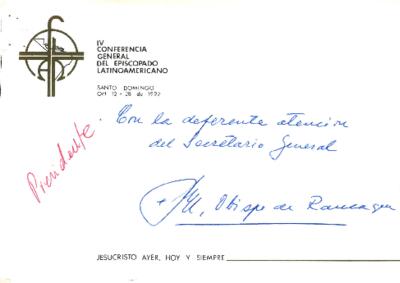 IV
CONFERENCIA
GENERAL
DEL EPISCOPADO
LATINOAMERICANO
SANTO DOMINGO
Oct 12 - 28 de 1992
Presidente.
Con la deferente atención
del Secretario General
Obispo de Rancagua
JESUCRISTO AYER, HOY Y SIEMPRE